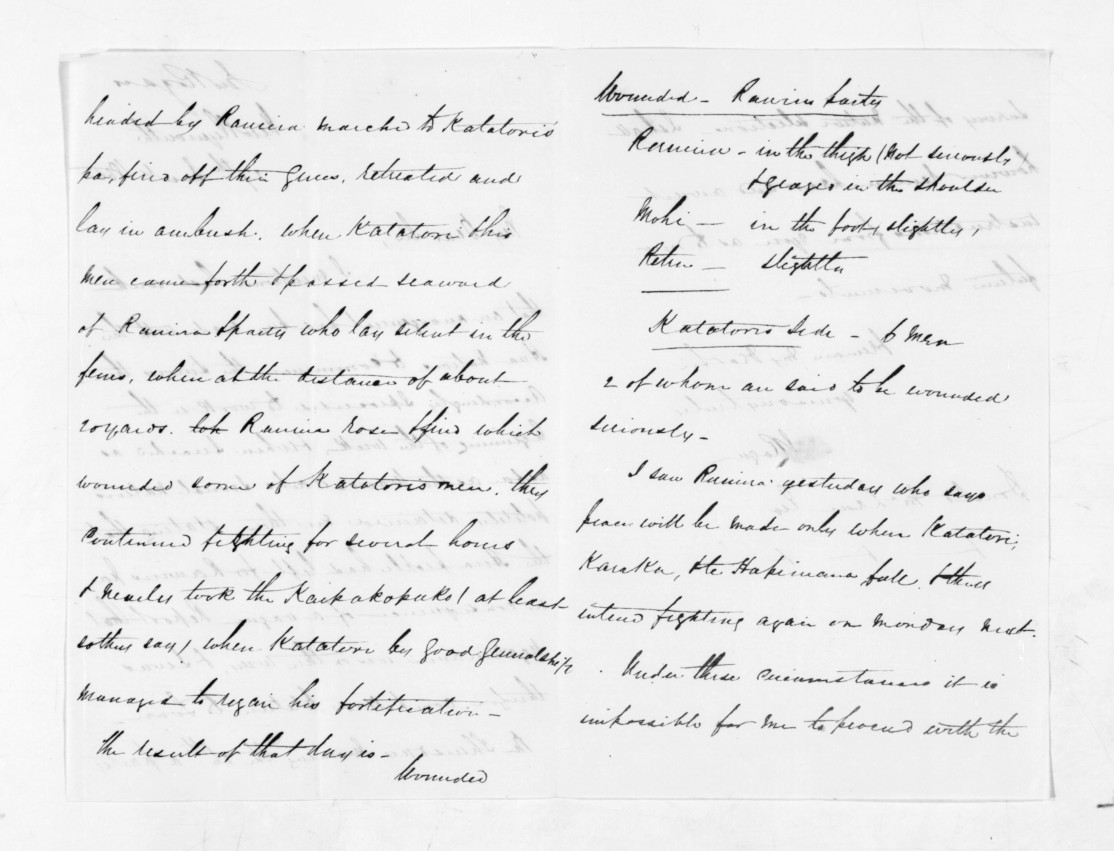 headed by Ramira marched to Katatori's
pa, fired off their guns, retreated and
lay in ambush. When Katatori & his
men came forth & passed seaward
of Ramira & party who lay silent in the
ferns, when at the distance of about
20 yards. Ramira rose & fired which
wounded some of Katatoris men. they
continued fighting for several hours
& nearly took the Kaipakopako (at least
so they say) when Katatori by good generalship
managed to regain his fortification —
The result of that day is —
Wounded
Wounded — Ramiras party
Ramira — in the thigh (not seriously
& grazed in the shoulder
Mohi — in the foot, slightly,
Retiu — slightly
Katatoris side — 6 men
2 of whom are said to be wounded
seriously —
I saw Ramira yesterday who says
peace will be made only when Katatori,
Karaka, & Te Hapimana fall, & they
intend fighting again on Monday next.
Under these circumstances it is
impossible for me to proceed with the